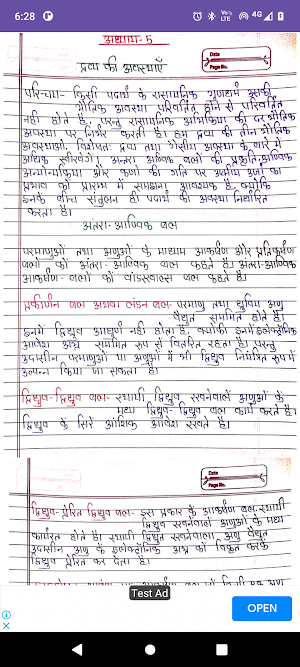 6:28
4G
अध्याय-5
Date
Page No.
द्रव्य की अवस्थाएँ
परिचय- किसी पदार्थ के रासायनिक गुणधर्म उसकी
भौतिक अवस्था परिवर्तित होने से परिवर्तित
नहीं होते हैं, परन्तु रासायनिक अभिक्रिया की दर भौतिक
अवस्था पर निर्भर करती है। हम द्रव्य की तीन भौतिक
अवस्थाओं, विशेषतः द्रव्य तथा गैसीय अवस्था के बारे में
अधिक सीखेंगे। अन्तरा आण्विक बलों की प्रकृति, आण्विक
अन्योन्यक्रिया और कणों की गति पर ऊष्मीय ऊर्जा का
प्रभाव को प्रारम्भ में समझना आवश्यक है, क्योंकि
इनके बीच संतुलन ही पदार्थ की अवस्था निर्धारित
करता है।
अंतरा-आण्विक बल
परमाणुओं तथा अणुओं के माध्यम आकर्षण और प्रतिकर्षण
बलों को अंतरा-आण्विक बल कहते हैं। अंतरा-आण्विक
आकर्षण-बलों को वांडरवाल्स बल कहते हैं।
प्रकीर्णन बल अथवा लंडन बल- परमाणु तथा ध्रुविय अणु
वैद्युत सममित होते हैं।
इनमें द्विध्रुव आघूर्ण नहीं होता है, क्योंकि इनमें इलेक्ट्रॉनिक
आवेश अभ्र सममित रूप से वितरित रहता है। परन्तु
उदासीन परमाणुओं या अणुओं में भी द्विध्रुव नियंत्रित रूप में
उत्पन्न किया जा सकता है।
द्विध्रुव-द्विध्रुव बल- स्थायी द्विध्रुव रखनेवालें अणुओं के
मध्य द्विध्रुव-द्विध्रुव बल कार्य करते हैं।
द्विध्रुव के सिरें आंशिक आवेश रखते हैं।
Date
Page No.
द्विध्रुव-प्रेरित द्विध्रुव बल- इस प्रकार के आकर्षण बल स्थायी
द्विध्रुव रखनेवाले अणुओं के मध्य
कार्यरत होते हैं। स्थायी द्विध्रुव रखनेवाला अणु वैद्युत
उदासीन अणु के इलेक्ट्रॉनिक अभ्र को विकृत करके
द्विध्रुव प्रेरित कर देता है।
Test Ad
OPEN